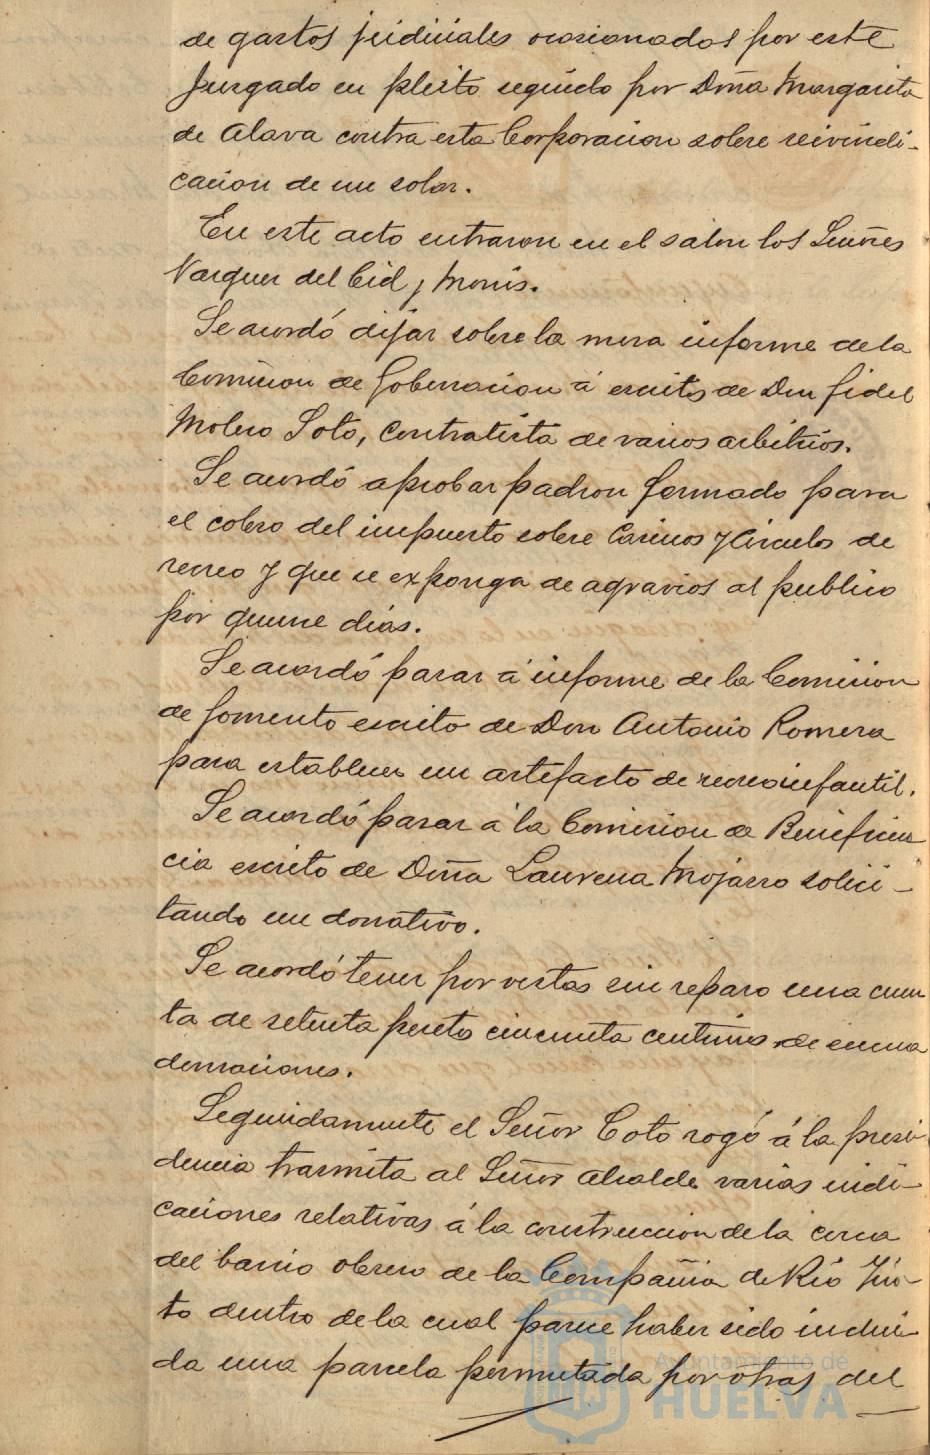 de gastos judiciales ocasionados por este
Juzgado en pleito seguido por Doña Margarita
de Alava contra esta Corporacion sobre reivindi-
cacion de un solar.
En este acto entraron en el salon los Señores
Vazquez del Cid y Monis.
Se acordó dejar sobre la mesa informe de la
Comision de Gobernacion á escrito de Don Fidel
Molero Soto, contratista de varios arbitrios.
Se acordó aprobar padron formado para
el cobro del impuesto sobre Casinos y Circulos de
recreo y que se exponga de agravios al publico
por quince dias.
Se acordó pasar á informe de la Comision
de fomento escrito de Don Antonio Romera
para establecer un artefacto de recreo infantil.
Se acordó pasar á la Comision de Beneficen
cia escrito de Doña Laurena Mojarro solici-
tando un donativo.
Se acordó tener por vistas sin reparo una cuen
ta de setenta pesetas cincuenta centimos de encua
dernaciones.
Seguidamente el Señor Coto rogó á la presi
dencia trasmita al Señor Alcalde varias indi-
caciones relativas á la construccion de la cerca
del barrio obrero de la Compañia de Rio Tin-
to dentro de la cual parece haber sido inclui-
da una parcela permutada por otras del
Ayuntamiento de
HUELVA